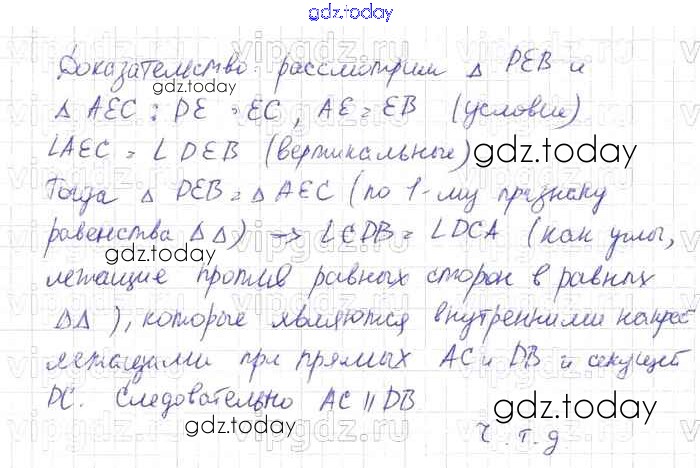 gdz.today
Доказательство: рассмотрим △ DEB и
△ AEC: DE = EC, AE = EB (условие)
∠AEC = ∠DEB (вертикальные)
gdz.today
Тогда △ DEB = △ AEC (по 1-му признаку
равенства △△) → ∠CDB = ∠DCA (как углы,
gdz.today
лежащие против равных сторон в равных
△△), которые являются внутренними накрест
лежащими при прямых AC и DB и секущей
DC. Следовательно AC || DB
gdz.today
ч.т.д.